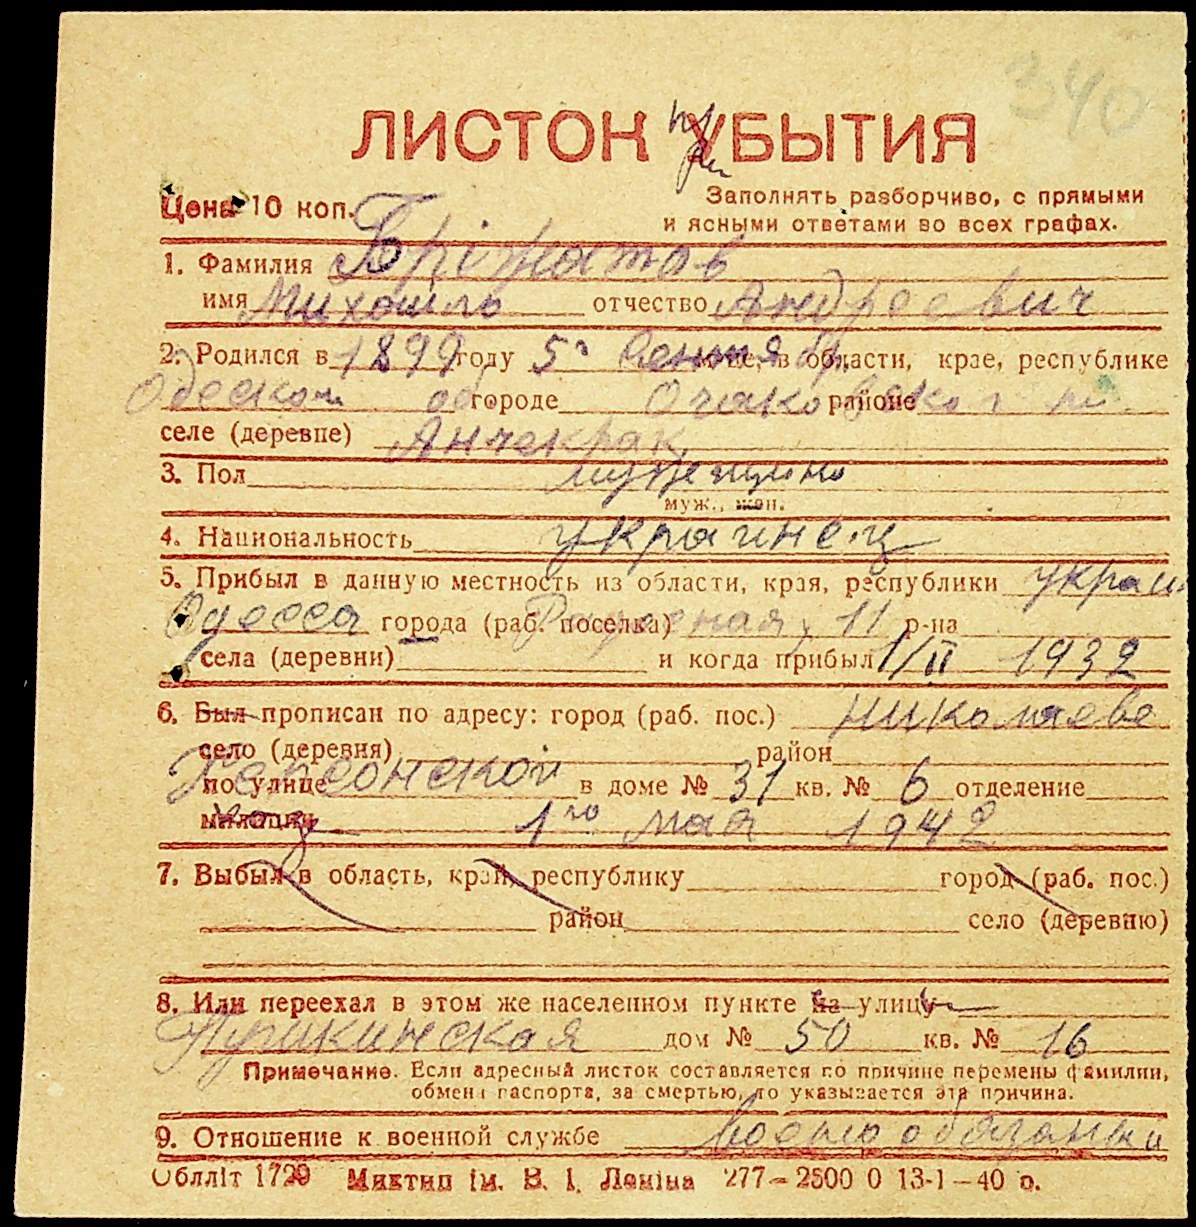 340
ЛИСТОК УБЫТИЯ
при
Цена 10 коп.
Заполнять разборчиво, с прямыми
и ясными ответами во всех графах.
1. Фамилия Бріжатов
имя Михошло отчество Андреевич
2. Родился в 1899 году 5 сентября м-це, в области, крае, республике
Одеской об городе Очаковского районе
селе (деревне) Анчекрак
3. Пол мужчина
муж., жен.
4. Национальность украинец
5. Прибыл в данную местность из области, края, республики украи
Одесса города (раб. поселка) 11 р-на
села (деревни) и когда прибыл 1/II 1932
6. Был прописан по адресу: город (раб. пос.) Николаеве
село (деревня) район
по улице Херсонской в доме № 31 кв. № 6 отделение
милиции 1го мая 1942
7. Выбыл в область, край, республику город (раб. пос.)
район село (деревню)
8. Или переехал в этом же населенном пункте на улицу
Пушкинская дом № 50 кв. № 16
Примечание. Если адресный листок составляется по причине перемены фамилии,
обмена паспорта, за смертью, то указывается эта причина.
9. Отношение к военной службе военнообязанный
Облліт 1729 Миктип ім. В. І. Леніна 277—2500 0 13-1—40 р.